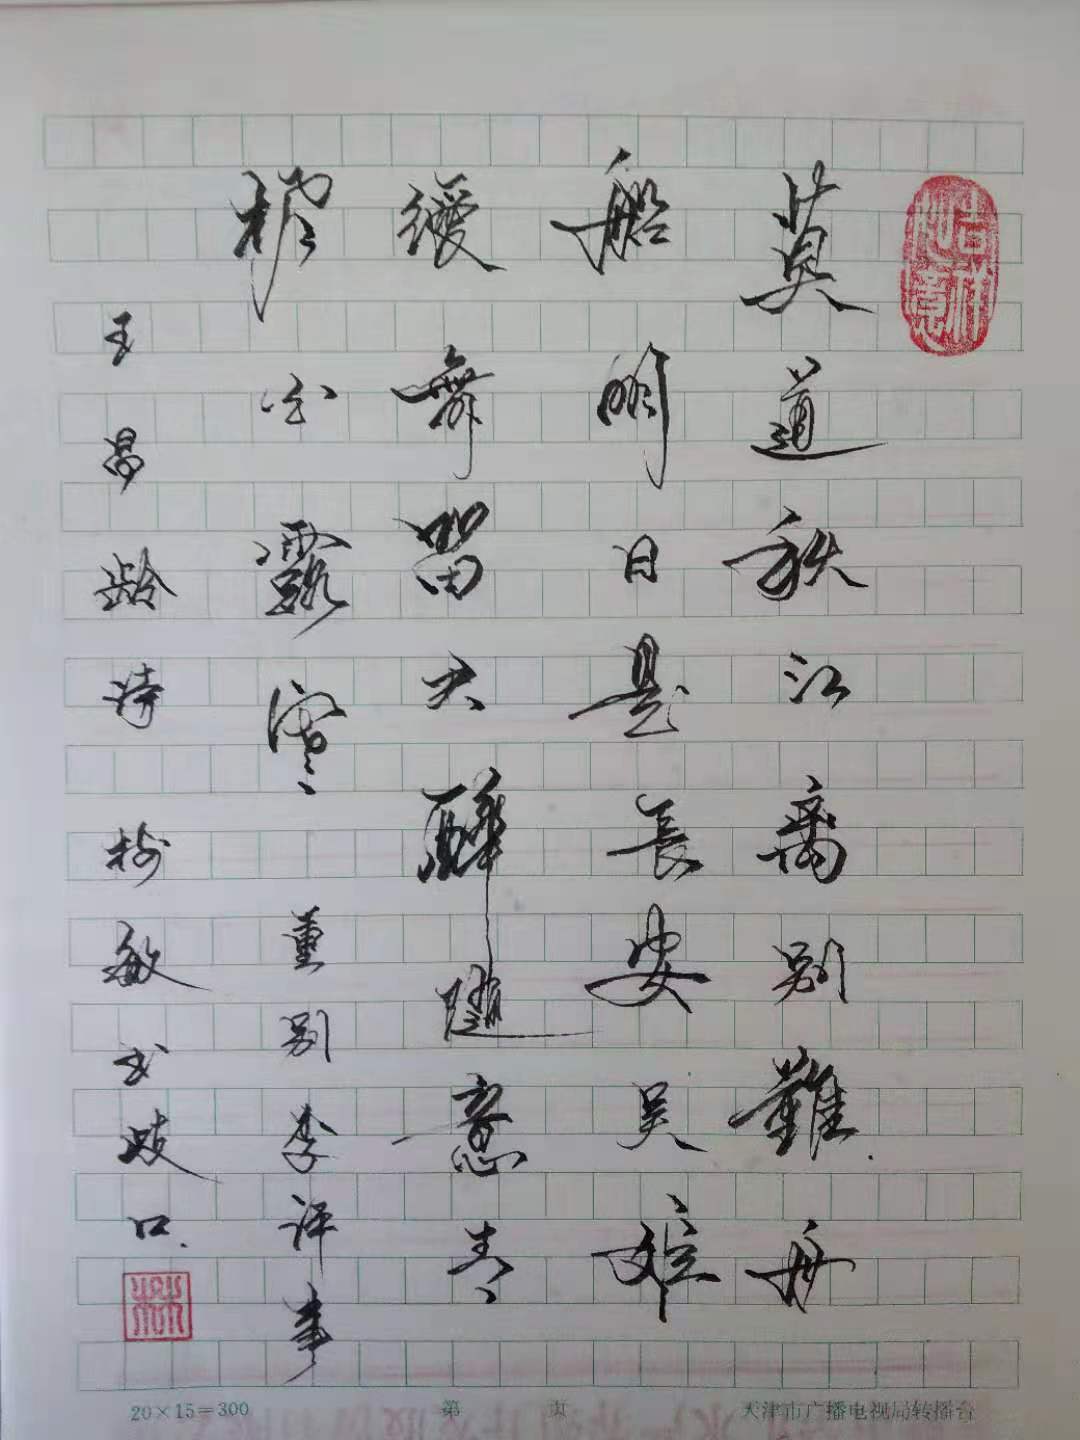 吉祥如意
莫道秋江离别難舟
船明日是長安吴姬
緩舞留君醉隨意青
楓白露寒 重别李评事
王昌龄诗 树敏书歧口
20×15=300 第 页 天津市广播电视局转播台